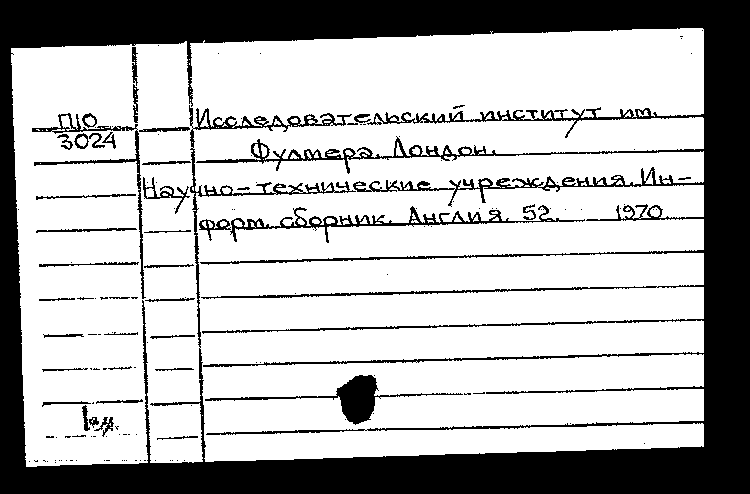 П10
3024
Исследовательский институт им.
Фулмера. Лондон.
Научно-технические учреждения. Ин-
форм. сборник. Англия. 52. 1970